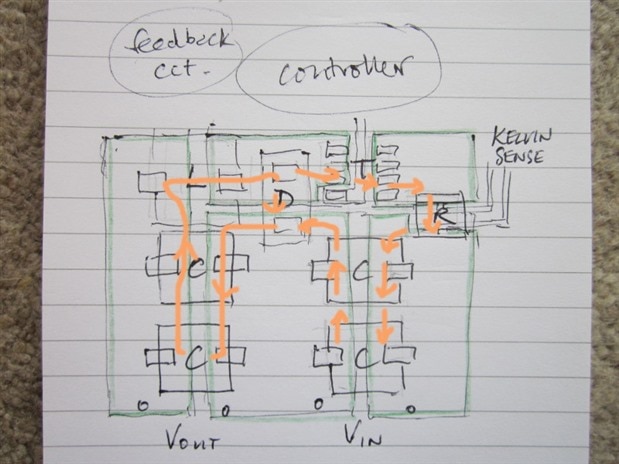 feedback
cct.
controller
KELVIN
SENSE
L
D
T
R
C
C
C
C
VOUT
VIN